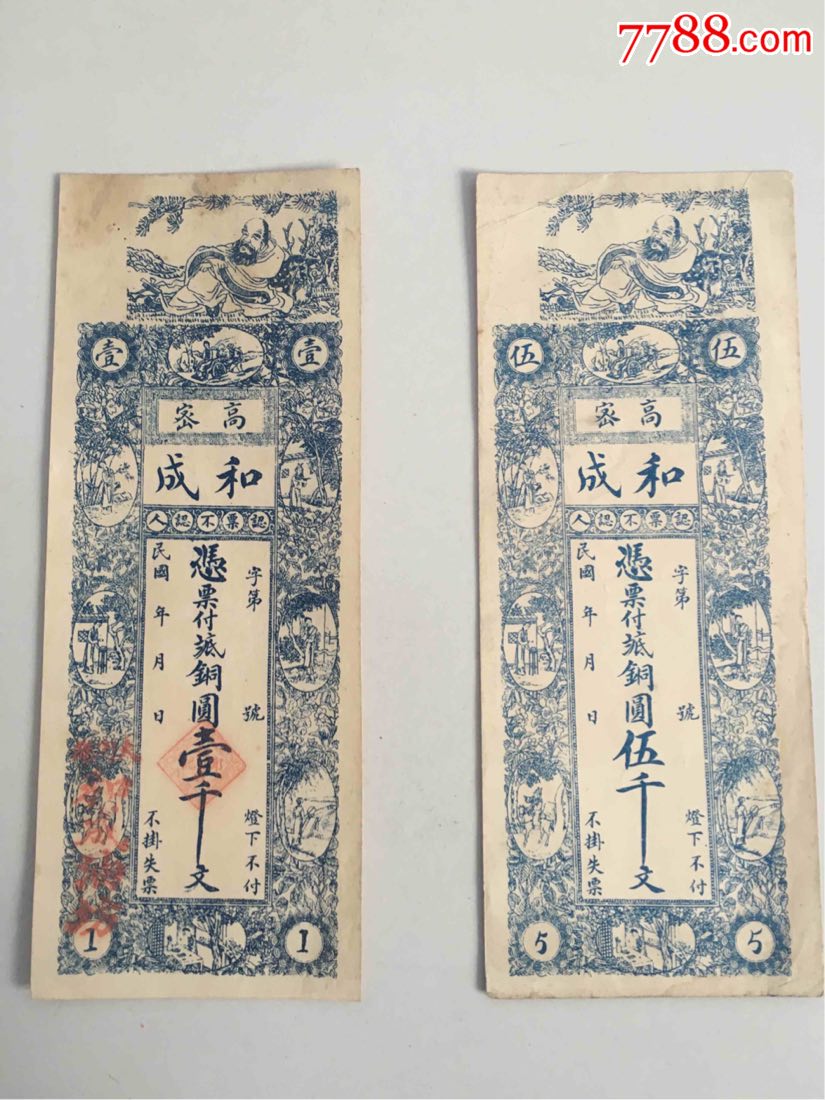 7788.com
壹 壹
高密
和成
認票不認人
字第 號
憑票付㡳銅圓壹千文
民國 年 月 日
燈下不付
不掛失票
1 1
伍 伍
高密
和成
認票不認人
字第 號
憑票付㡳銅圓伍千文
民國 年 月 日
燈下不付
不掛失票
5 5